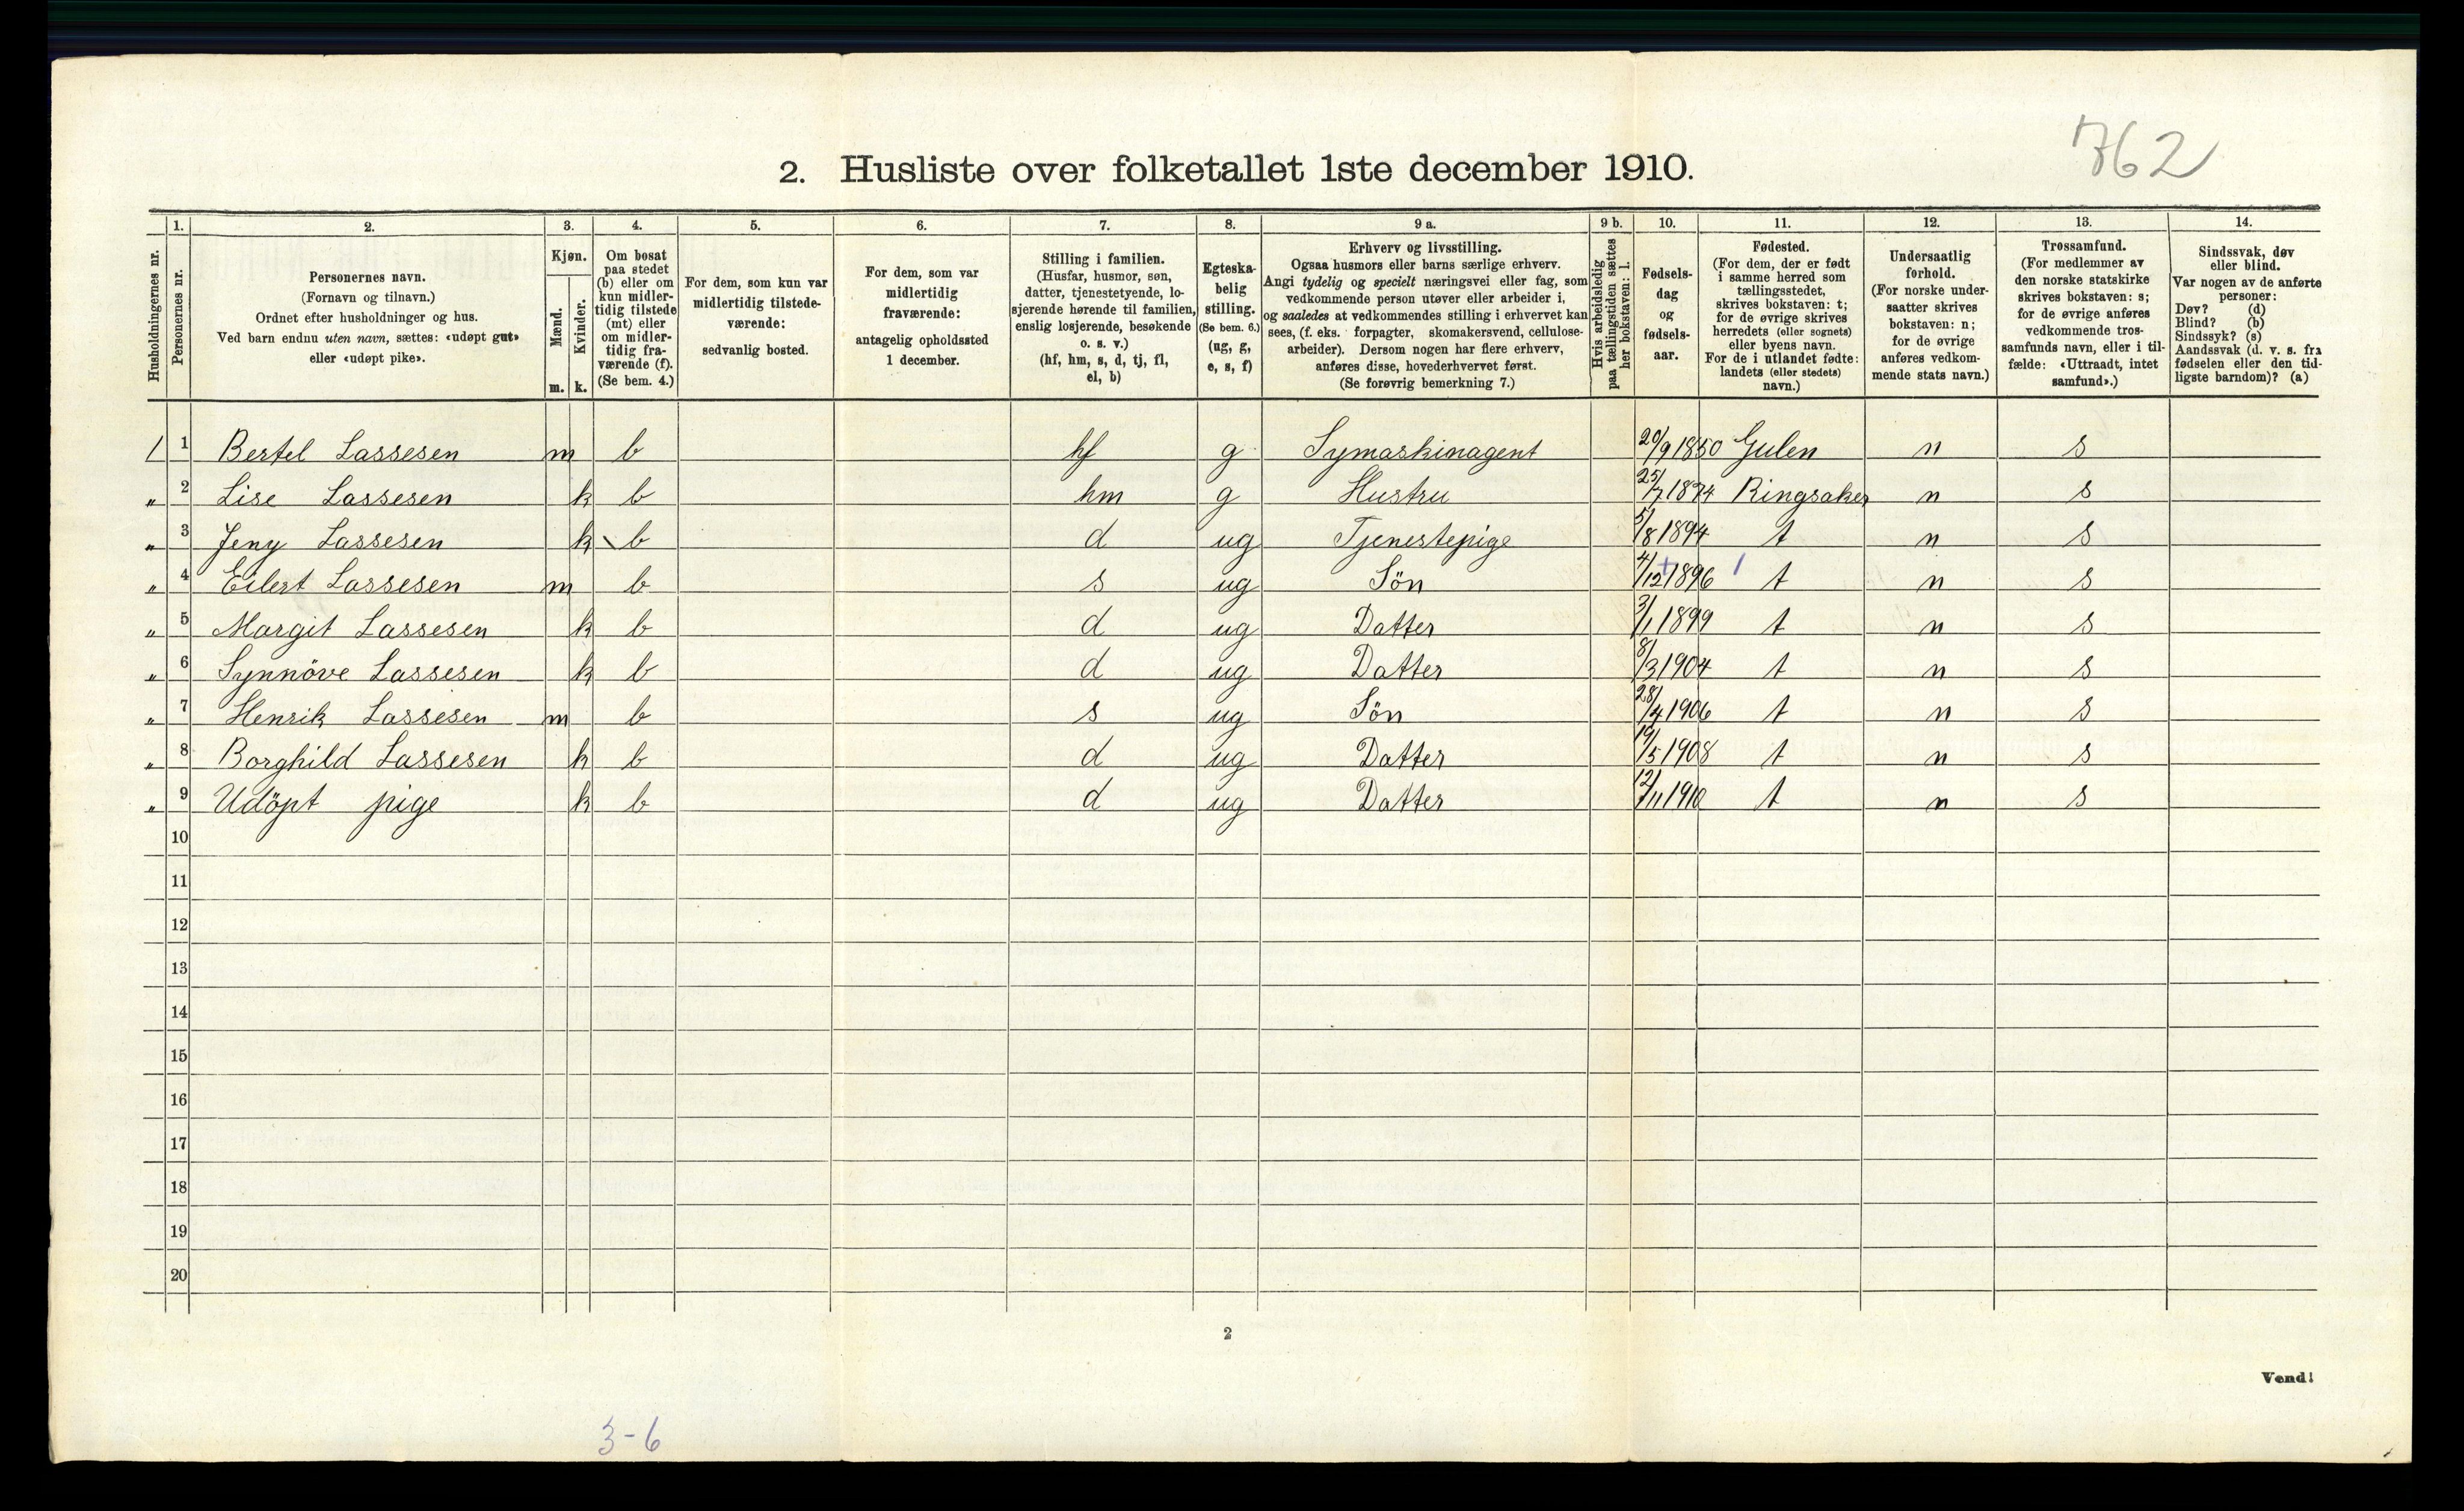 762
2. Husliste over folketallet 1ste december 1910.
Husholdningernes nr.
1.
Personernes nr.
2.
Personernes navn.
(Fornavn og tilnavn.)
Ordnet efter husholdninger og hus.
Ved barn endnu uten navn, sættes: «udøpt gut»
eller «udøpt pike».
3.
Kjøn.
Mænd.
m.
Kvinder.
k.
4.
Om bosat
paa stedet
(b) eller om
kun midler-
tidig tilstede
(mt) eller
om midler-
tidig fra-
værende (f).
(Se bem. 4.)
5.
For dem, som kun var
midlertidig tilstede-
værende:
sedvanlig bosted.
6.
For dem, som var
midlertidig
fraværende:
antagelig opholdssted
1 december.
7.
Stilling i familien.
(Husfar, husmor, søn,
datter, tjenestetyende, lo-
sjerende hørende til familien,
enslig losjerende, besøkende
o. s. v.)
(hf, hm, s, d, tj, fl,
el, b)
8.
Egteska-
belig
stilling.
(Se bem. 6.)
(ug, g,
e, s, f)
9 a.
Erhverv og livsstilling.
Ogsaa husmors eller barns særlige erhverv.
Angi tydelig og specielt næringsvei eller fag, som
vedkommende person utøver eller arbeider i,
og saaledes at vedkommendes stilling i erhvervet kan
sees, (f. eks. forpagter, skomakersvend, cellulose-
arbeider). Dersom nogen har flere erhverv,
anføres disse, hovederhvervet først.
(Se forøvrig bemerkning 7.)
9 b.
Hvis arbeidsledig
paa tællingstiden sættes
her bokstaven: l.
10.
Fødsels-
dag
og
fødsels-
aar.
11.
Fødested.
(For dem, der er født
i samme herred som
tællingsstedet,
skrives bokstaven: t;
for de øvrige skrives
herredets (eller sognets)
eller byens navn.
For de i utlandet fødte:
landets (eller stedets)
navn.)
12.
Undersaatlig
forhold.
(For norske under-
saatter skrives
bokstaven: n;
for de øvrige
anføres vedkom-
mende stats navn.)
13.
Trossamfund.
(For medlemmer av
den norske statskirke
skrives bokstaven: s;
for de øvrige anføres
vedkommende tros-
samfunds navn, eller i til-
fælde: «Uttraadt, intet
samfund».)
14.
Sindssvak, døv
eller blind.
Var nogen av de anførte
personer:
Døv? (d)
Blind? (b)
Sindssyk? (s)
Aandssvak (d. v. s. fra
fødselen eller den tid-
ligste barndom)? (a)
1 1 Bertel Lassesen m b hf g Symaskinagent 20/9 1850 Gulen n s
" 2 Lise Lassesen k b hm g Hustru 25/7 1874 Ringsaker n s
" 3 Jeny Lassesen k b d ug Tjenestepige 5/8 1894 t n s
" 4 Eilert Lassesen m b s ug Sön 4/12 1896 t n s
" 5 Margit Lassesen k b d ug Datter 3/1 1899 t n s
" 6 Synnöve Lassesen k b d ug Datter 8/3 1904 t n s
" 7 Henrik Lassesen m b s ug Sön 28/4 1906 t n s
" 8 Borghild Lassesen k b d ug Datter 19/5 1908 t n s
" 9 Udöpt pige k b d ug Datter 12/11 1910 t n s
10
11
12
13
14
15
16
17
18
19
20
2
Vend!
3-6